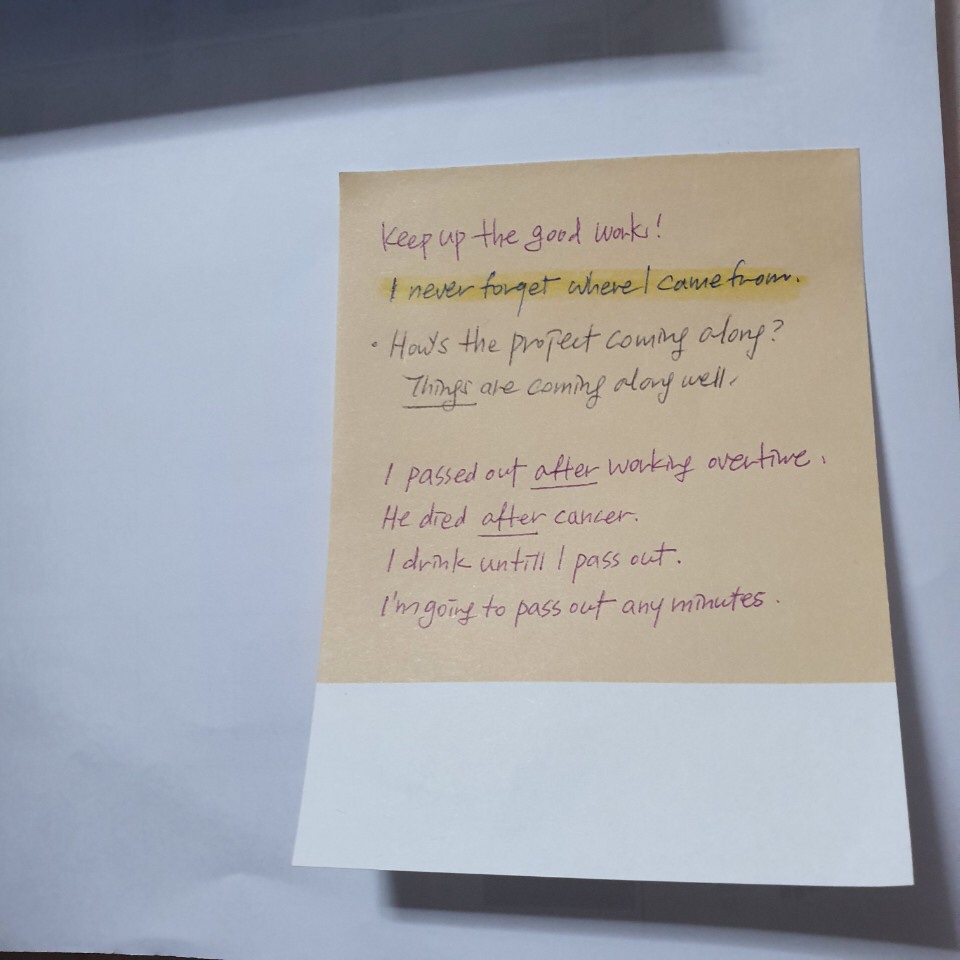 Keep up the good work!
I never forget where I came from.
· How's the project coming along?
Things are coming along well.
I passed out after working overtime.
He died after cancer.
I drink untill I pass out.
I'm going to pass out any minutes.